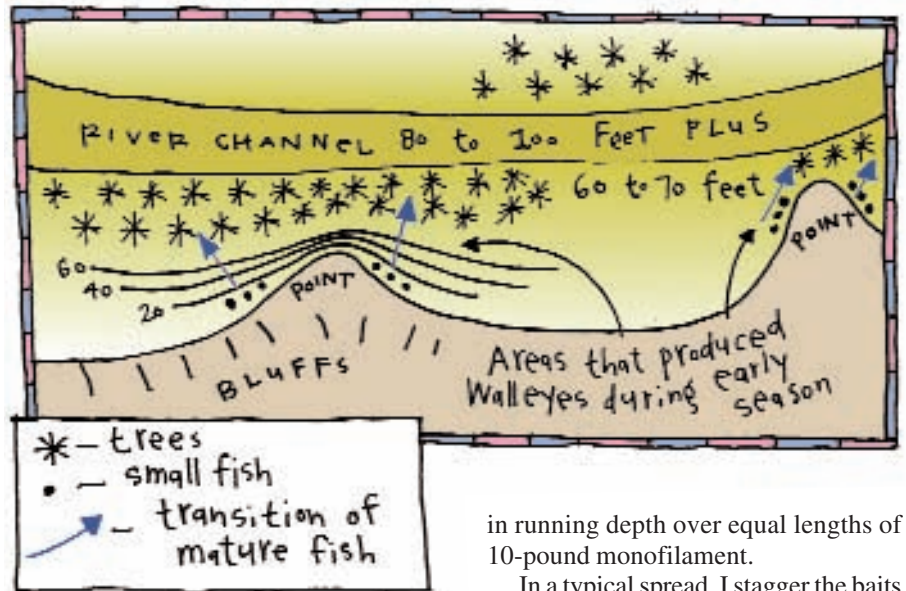 RIVER CHANNEL 80 to 100 FEET PLUS
60 to 70 feet
60
40
20
POINT
POINT
BLUFFS
Areas that produced
Walleyes during early
season
trees
small fish
transition of
mature fish
in running depth over equal lengths of
10-pound monofilament.
In a typical spread, I stagger the baits